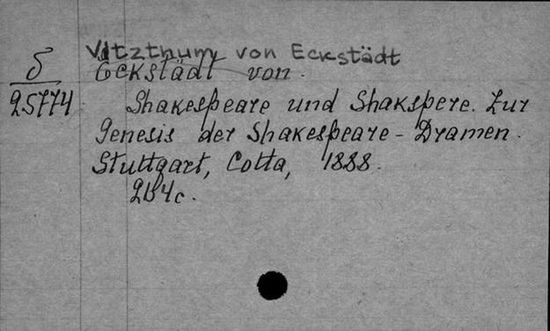 Vitzthum von Eckstädt
Eckstädt von.
δ
25774
Shakespeare und Shakspere. Zur
Genesis der Shakespeare-Dramen.
Stuttgart, Cotta, 1888.